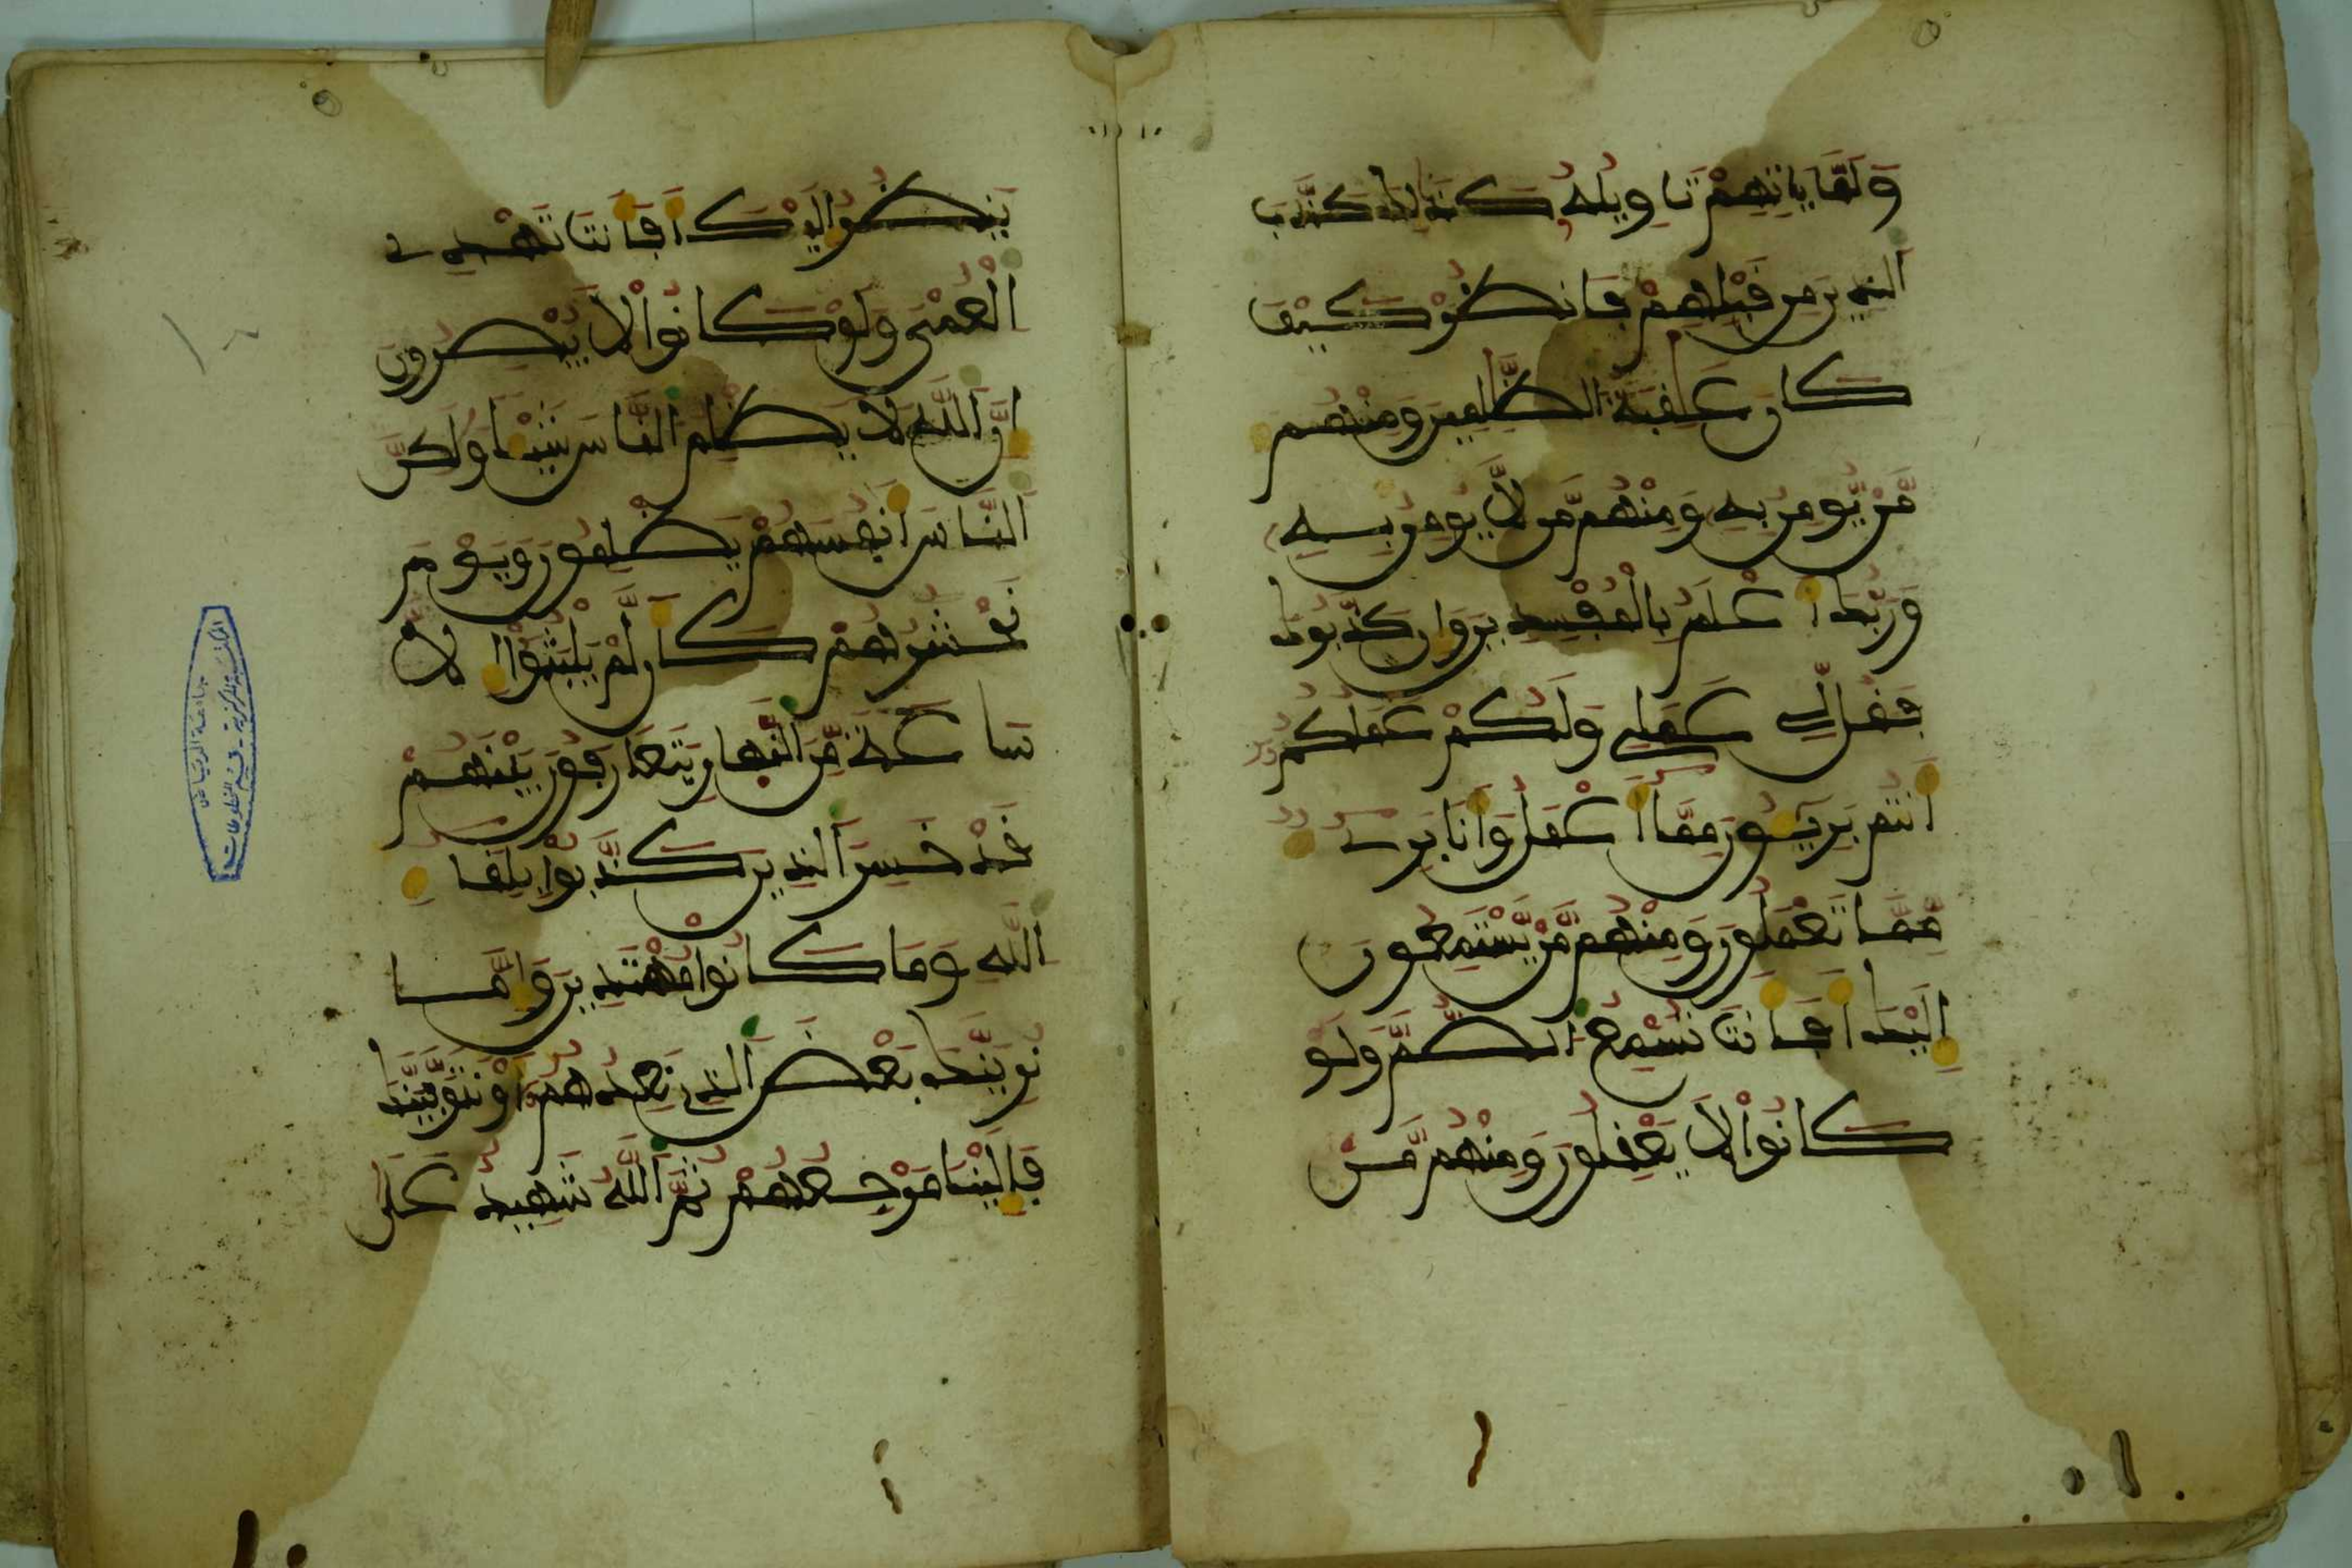 وَلَمَّا يَاتِهِمْ تَاوِيلُهُ كَذَٰلِكَ كَذَّبَ
ٱلذِينَ مِن قَبْلِهِمْ فَانظُرْ كَيْفَ
كَانَ عَٰقِبَةُ ٱلظَّٰلِمِينَ وَمِنْهُم
مَّنْ يُّومِنُ بِهِ وَمِنْهُم مَّن لَّا يُومِنُ بِهِ
وَرَبُّكَ أَعْلَمُ بِالْمُفْسِدِينَ وَإِن كَذَّبُوكَ
فَقُل لِّي عَمَلِي وَلَكُمْ عَمَلُكُمُ
أَنتُم بَرِيـُٔونَ مِمَّا أَعْمَلُ وَأَنَا بَرِيءٌ
مِّمَّا تَعْمَلُونَ وَمِنْهُم مَّنْ يَّسْتَمِعُونَ
إِلَيْكَ أَفَأَنتَ تُسْمِعُ ٱلصُّمَّ وَلَوْ
كَانُوا۟ لَا يَعْقِلُونَ وَمِنْهُم مَّنْ
يَنظُرُ إِلَيْكَ أَفَأَنتَ تَهْدِي
ٱلْعُمْيَ وَلَوْ كَانُوا۟ لَا يُبْصِرُونَ
إِنَّ ٱللَّهَ لَا يَظْلِمُ ٱلنَّاسَ شَيْـًٔا وَلَٰكِنَّ
ٱلنَّاسَ أَنفُسَهُمْ يَظْلِمُونَ وَيَوْمَ
نَحْشُرُهُمْ كَأَن لَّمْ يَلْبَثُوا۟ إِلَّا
سَاعَةً مِّنَ ٱلنَّهَارِ يَتَعَارَفُونَ بَيْنَهُمْ
قَدْ خَسِرَ ٱلذِينَ كَذَّبُوا۟ بِلِقَاءِ
ٱللَّهِ وَمَا كَانُوا۟ مُهْتَدِينَ وَإِمَّا
نُرِيَنَّكَ بَعْضَ ٱلذِي نَعِدُهُمُ أَوْ نَتَوَفَّيَنَّكَ
فَإِلَيْنَا مَرْجِعُهُمْ ثُمَّ ٱللَّهُ شَهِيدٌ عَلَىٰ
جامعة الرياض
المكتبة المركزية - قسم المخطوطات